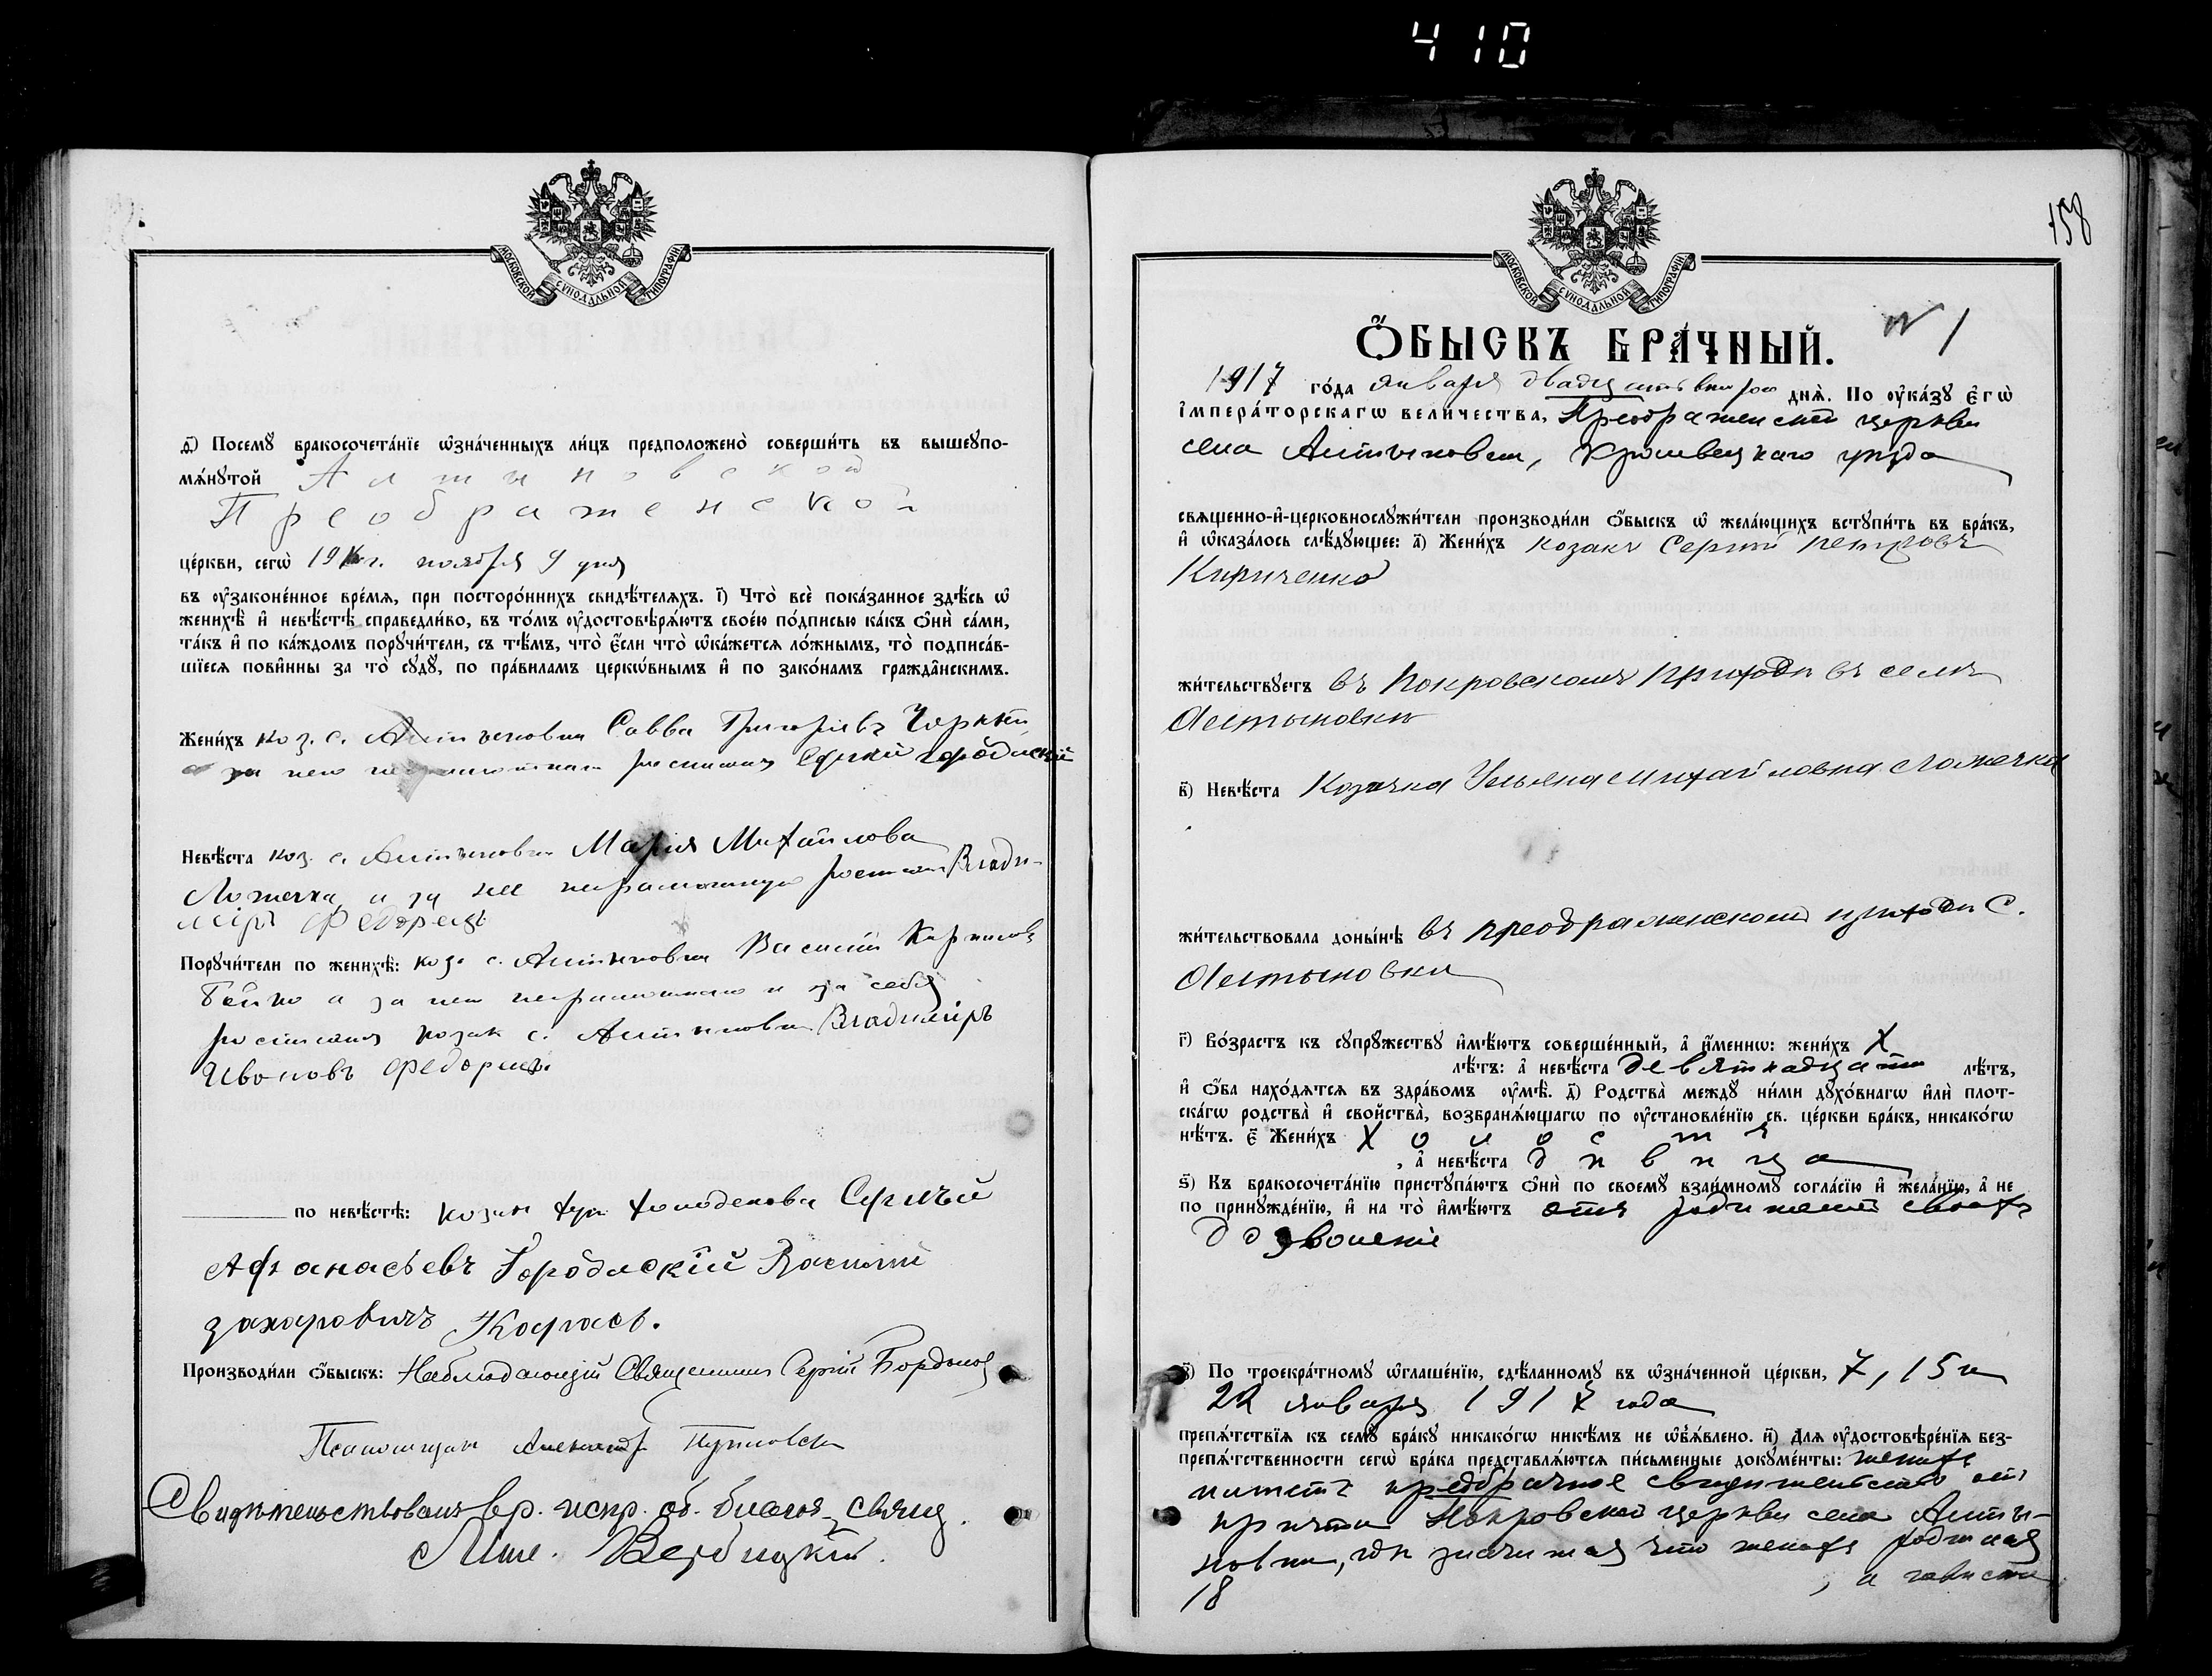 410
МОСКОВСКОЙ СѴНОДАЛЬНОЙ ТИПОГРАФІИ
д҃) Посемꙋ̀ бракосочета́нїе ѡ҆зна́ченныхъ ли́цъ предположено̀ соверши́ть въ вышеꙋпо-
мѧ́нꙋтой Алтыновской
Преображенской
це́ркви, сегѡ̀ 191 г. ноября 9 дня
въ ᲂу҆законе́нное вре́мѧ, при посторо́ннихъ свидѣ́телѧхъ. і҃) Что̀ всѐ пока́занное здѣ́сь ѡ҆
женихѣ̀ и҆ невѣ́стѣ справедли́во, въ то́мъ ᲂу҆достовѣрѧ́ютъ свое́ю по́дписью ка́къ ѻ҆нѝ са́ми,
та́къ и҆ по ка́ждомъ порꙋчи́тели, съ тѣ́мъ, что̀ є҆́сли что̀ ѡ҆ка́жетсѧ ло́жнымъ, то̀ подписа́в-
шїесѧ пови́нны за то̀ сꙋдꙋ̀, по пра́виламъ церкѡ́внымъ и҆ по зако́намъ гражда̂нскимъ.
Жени́хъ коз. с. Алтыновки Савва Григорьевъ
а за него неграмотнаго росписался Сергий Городиский
Невѣ́ста коз. с. Алтыновки Мария Михайлова
Ложечка, а за нее неграмотную росписался Влади-
міръ Федорецъ
Порꙋчи́тели по женихѣ̀: коз. с. Алтыновки Василий
а за него неграмотнаго и за себя
росписался козак с. Алтыновки Владиміръ
Ивановъ Федорецъ.
по невѣ́стѣ: козак Сергий
Афанасьевъ Городискій Василий
Захаровичъ Карась.
Производи́ли ѻ҆́быскъ: Наблюдающій Священникъ Сергій
Псаломщикъ Александръ
Свидѣтельствовалъ вр. испр. об. благоч. свящ.
Вербицкій.
158
МОСКОВСКОЙ СѴНОДАЛЬНОЙ ТИПОГРАФІИ
№ 1
Ѻ҆́БЫСКЪ БРА́ЧНЫЙ.
1917 го́да января двадцать второго днѧ̀. По ᲂу҆ка́зꙋ Є҆гѡ̀
і҆мпера́торскагѡ вели́чества, Преображенской церкви
села Алтыновки, Кролевецкаго уезда
свѧщенно-и҆-церковнослꙋжи́тели производи́ли ѻ҆́быскъ ѡ҆ жела́ющихъ встꙋпи́ть въ бра́къ,
и҆ ѡ҆каза́лось слѣ́дꙋющее: а҃) Жени́хъ козакъ Сергий Петровъ
Кириченко
жи́тельствꙋетъ въ Покровскомъ приходѣ въ селѣ
Алтыновки
в҃) Невѣ́ста Козачка Ульяна Михайловна Ложечка
жи́тельствовала доны́нѣ въ преображенскомъ приходи С.
Алтыновки
г҃) Во́зрастъ къ сꙋпрꙋ́жествꙋ и҆мѣ́ютъ соверше́нный, а҆ и҆́меннѡ: жени́хъ X
лѣ́тъ: а҆ невѣ́ста девятнадцати лѣ́тъ,
и҆ ѻ҆́ба нахо́дѧтсѧ въ здра́вомъ ᲂу҆мѣ̀. д҃) Родства̀ междꙋ̀ ни́ми дꙋхо́внагѡ и҆лѝ плот-
ска́гѡ родства̀ и҆ свойства̀, возбранѧ́ющагѡ по ᲂу҆становле́нїю св. це́ркви бра́къ, никако́гѡ
нѣ́тъ. є҃) Жени́хъ Холостъ
, а҆ невѣ́ста дѣвица
ѕ҃) Къ бракосочета́нїю пристꙋпа́ютъ ѻ҆нѝ по своемꙋ̀ взаи́мномꙋ согла́сїю и҆ жела́нїю, а҆ не
по принꙋжде́нїю, и҆ на то̀ и҆мѣ́ютъ отъ родителей своихъ
дозволеніе
з҃) По троекра́тномꙋ ѡ҆глаше́нїю, сдѣ́ланномꙋ въ ѡ҆зна́ченной це́ркви, 7, 15 и
22 января 1917 года
препѧ́тствїѧ къ семꙋ̀ бра́кꙋ никако́гѡ никѣ́мъ не ѡ҆б̾ѧ́влено. и҃) Длѧ ᲂу҆достовѣре́нїѧ без-
препѧ́тственности сегѡ̀ бра́ка представлѧ́ютсѧ пи́сьменные докꙋме́нты: женихъ
имѣетъ предбрачное свидительство отъ
причта Покровской церкви села Алты-
новки, гдѣ значится что женихъ родился
18